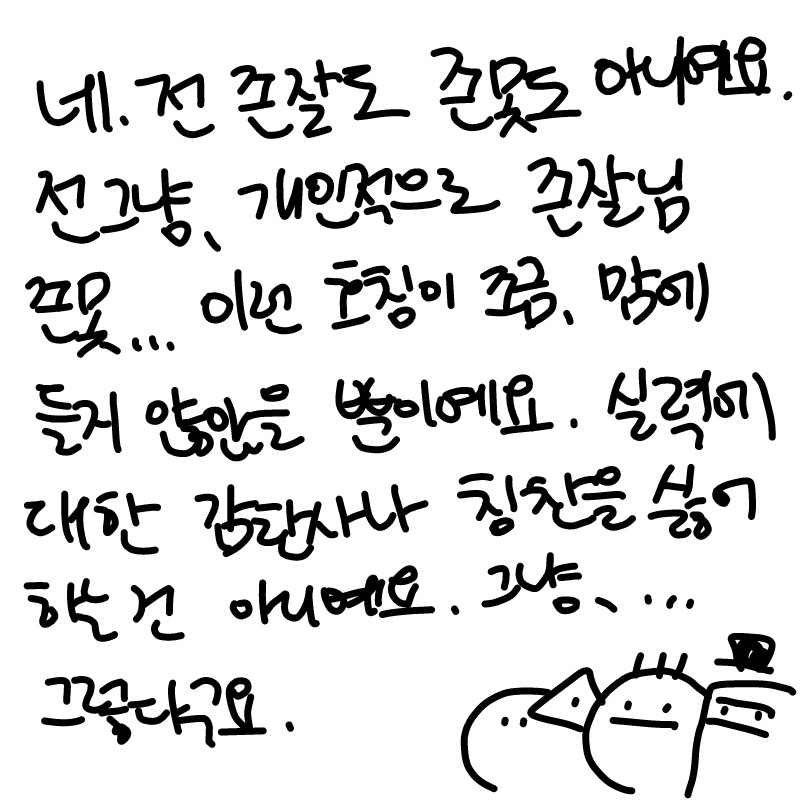 네. 전 존잘도 존못도 아니예요.
전 그냥, 개인적으로 존잘님
존못... 이런 호칭이 조금, 맘에
들지 않았을 뿐이예요. 실력에
대한 감탄사나 칭찬을 싫어
하는 건 아니예요. 그냥, ...
그렇다구요.